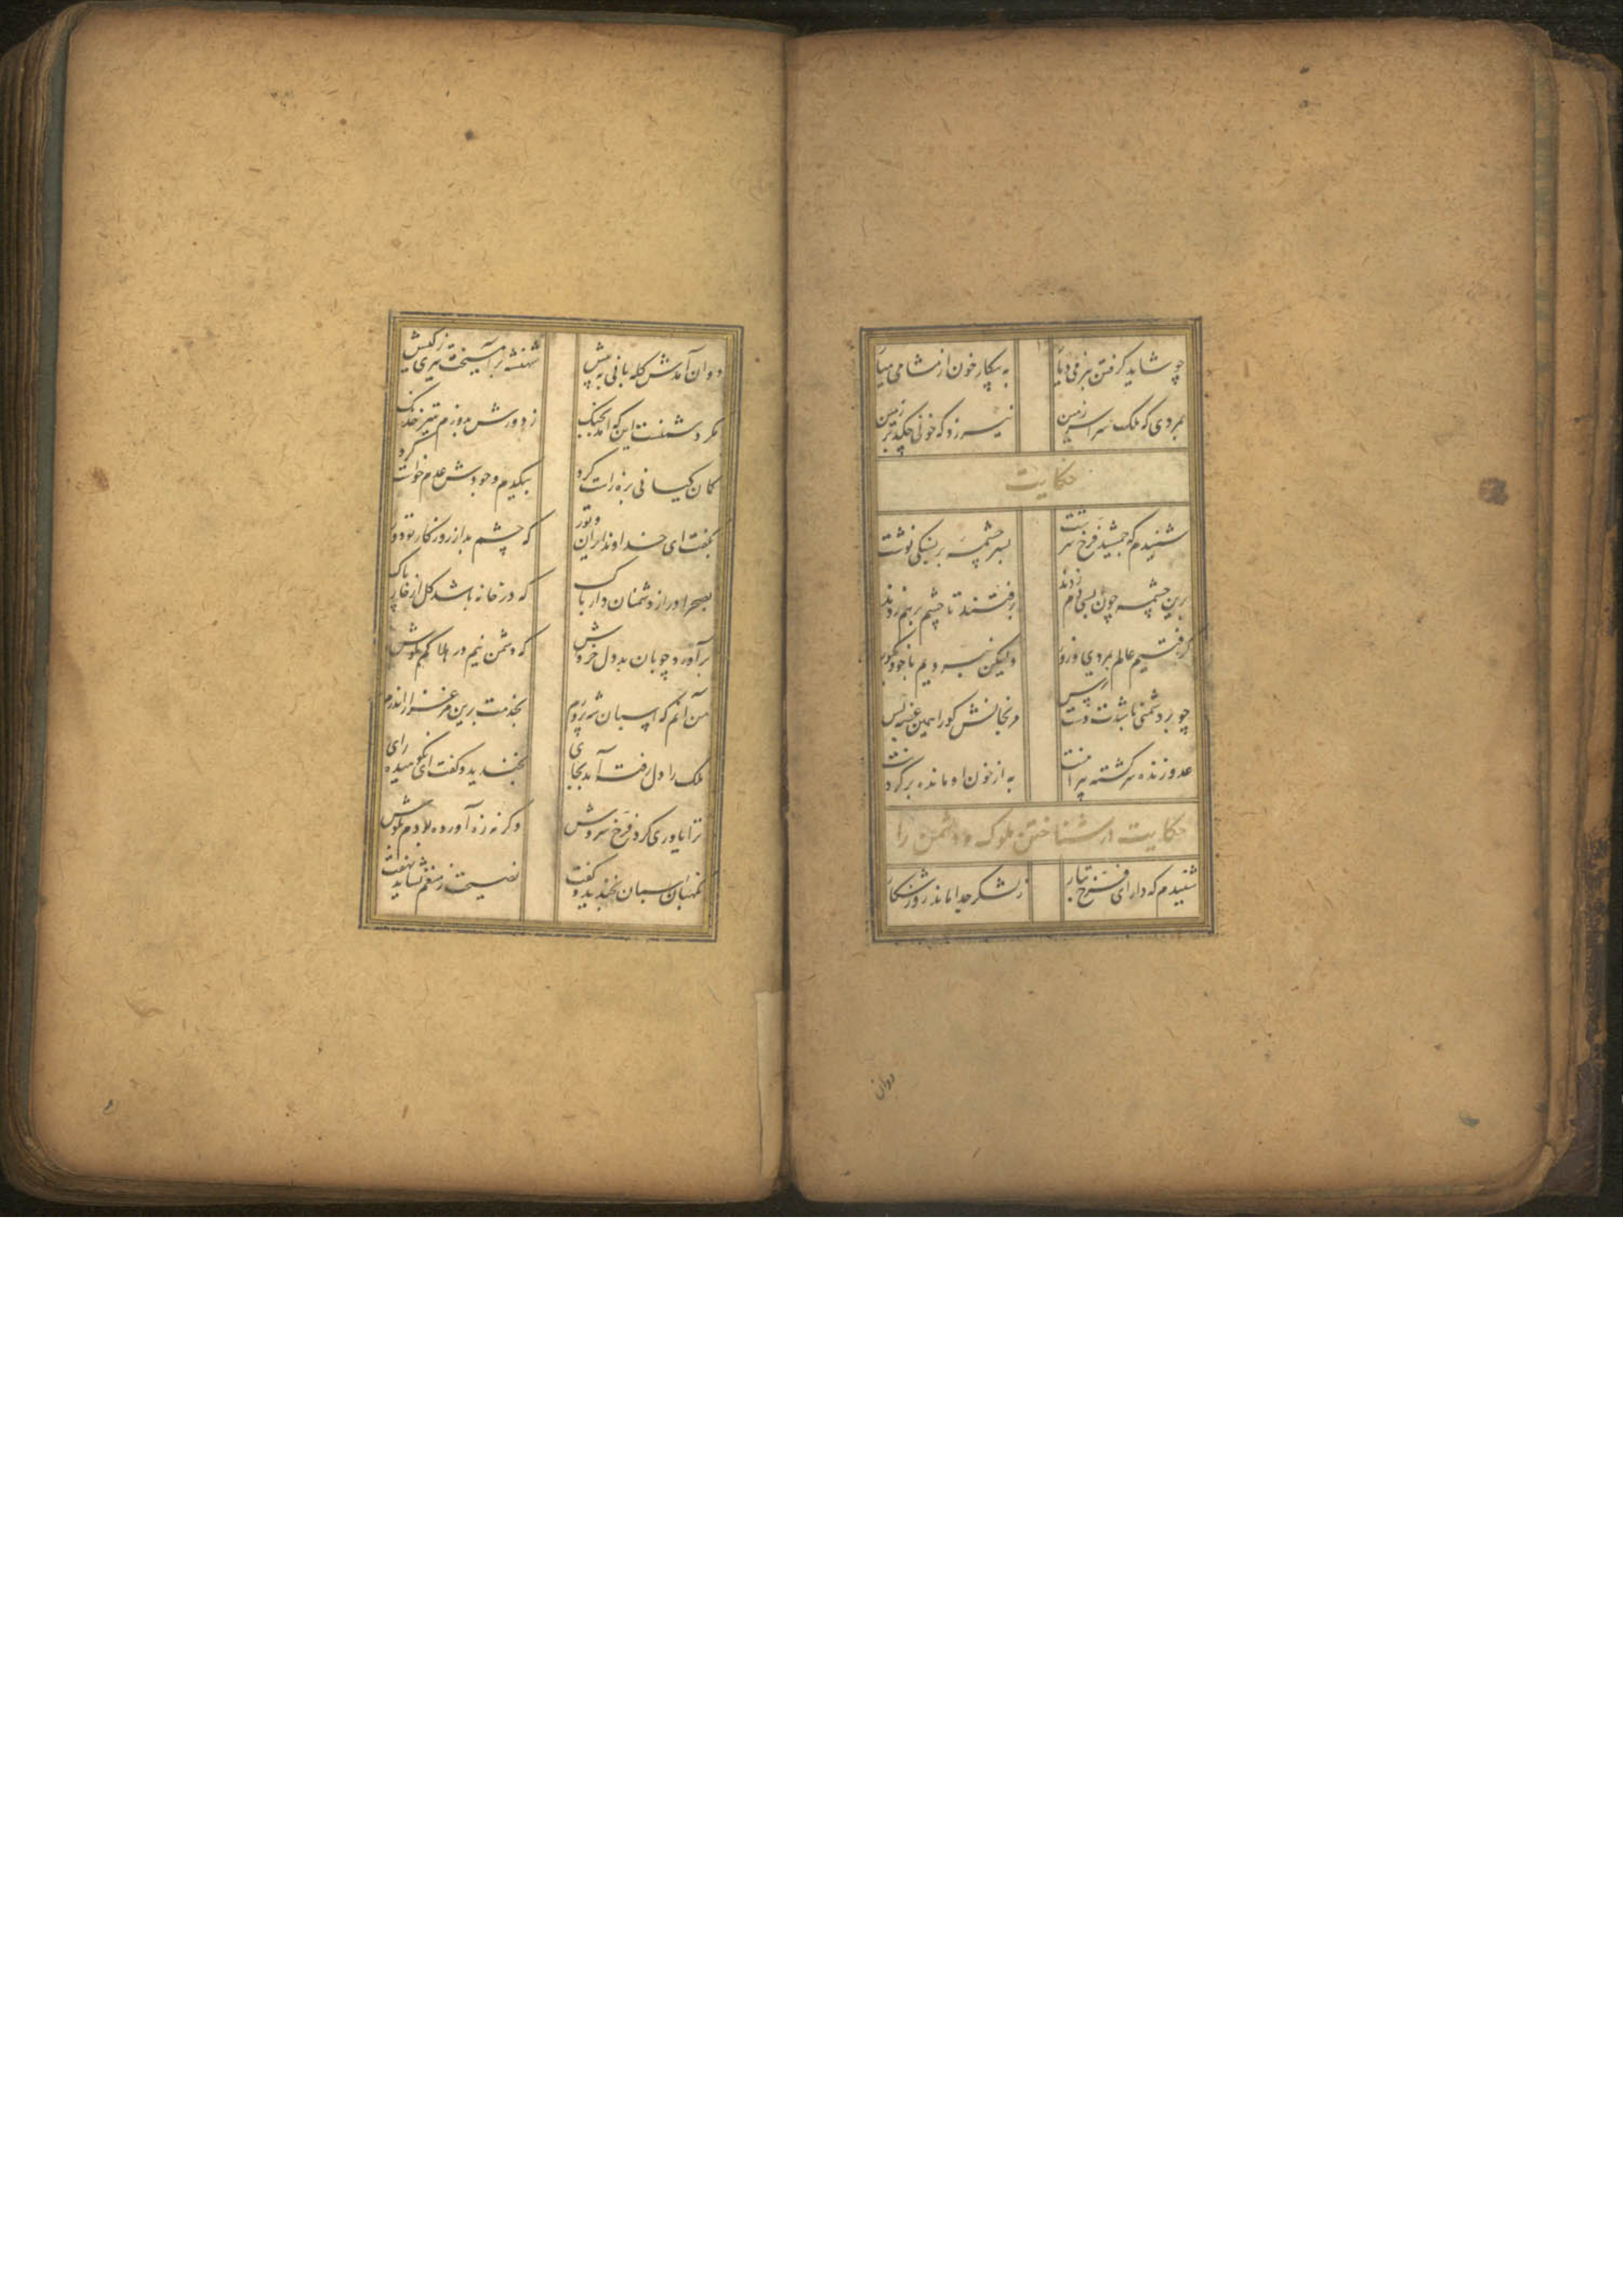 چو شاید گرفتن بنرمی دیار به پیکار خون از مشامی میار
بمردی که ملک سراسر زمین نیرزد که خونی چکد بر زمین
حکایت
شنیدم که جمشید فرخ سرشت بسرچشمه بر بسنگی نوشت
برین چشمه چون ما بسی دم زدند برفتند تا چشم برهم زدند
گرفتیم عالم بمردی و زور ولیکن نبردیم با خود بگور
چو بر دشمنی باشدت دسترس مرنجانش کورا همین غصه بس
عدو زنده سرگشته پیرامنت به از خون او مانده بر گردنت
حکایت در شناختن ملوک دشمن را
شنیدم که دارای فرخ تبار ز لشکر جدا ماند روز شکار
دوان
دوان آمدش گله بانی به پیش شهنشه برآمیخت تیری ز کیش
مگر دشمنست این که آمد بجنگ ز دورش بدوزم بتیر خدنگ
کمان کیانی بزه راست کرد بیکدم وجودش عدم خواست کرد
بگفت ای خداوند ایران و تور که چشم بد از روزگار تو دور
بصحرا در از دشمنان دار باک که در خانه باشد گل از خار پاک
برآورد چوپان بد دل خروش که دشمن نیم در هلاکم مکوش
من آنم که اسپان شه پرورم بخدمت برین مرغزار اندرم
ملک را دل رفته آمد بجای بخندید و گفت ای نکوهیده رای
ترا یاوری کرد فرخ سروش وگرنه زه آورده بودم بگوش
نگهبان اسپان بخندید و گفت نصیحت ز منعم نشاید نهفت